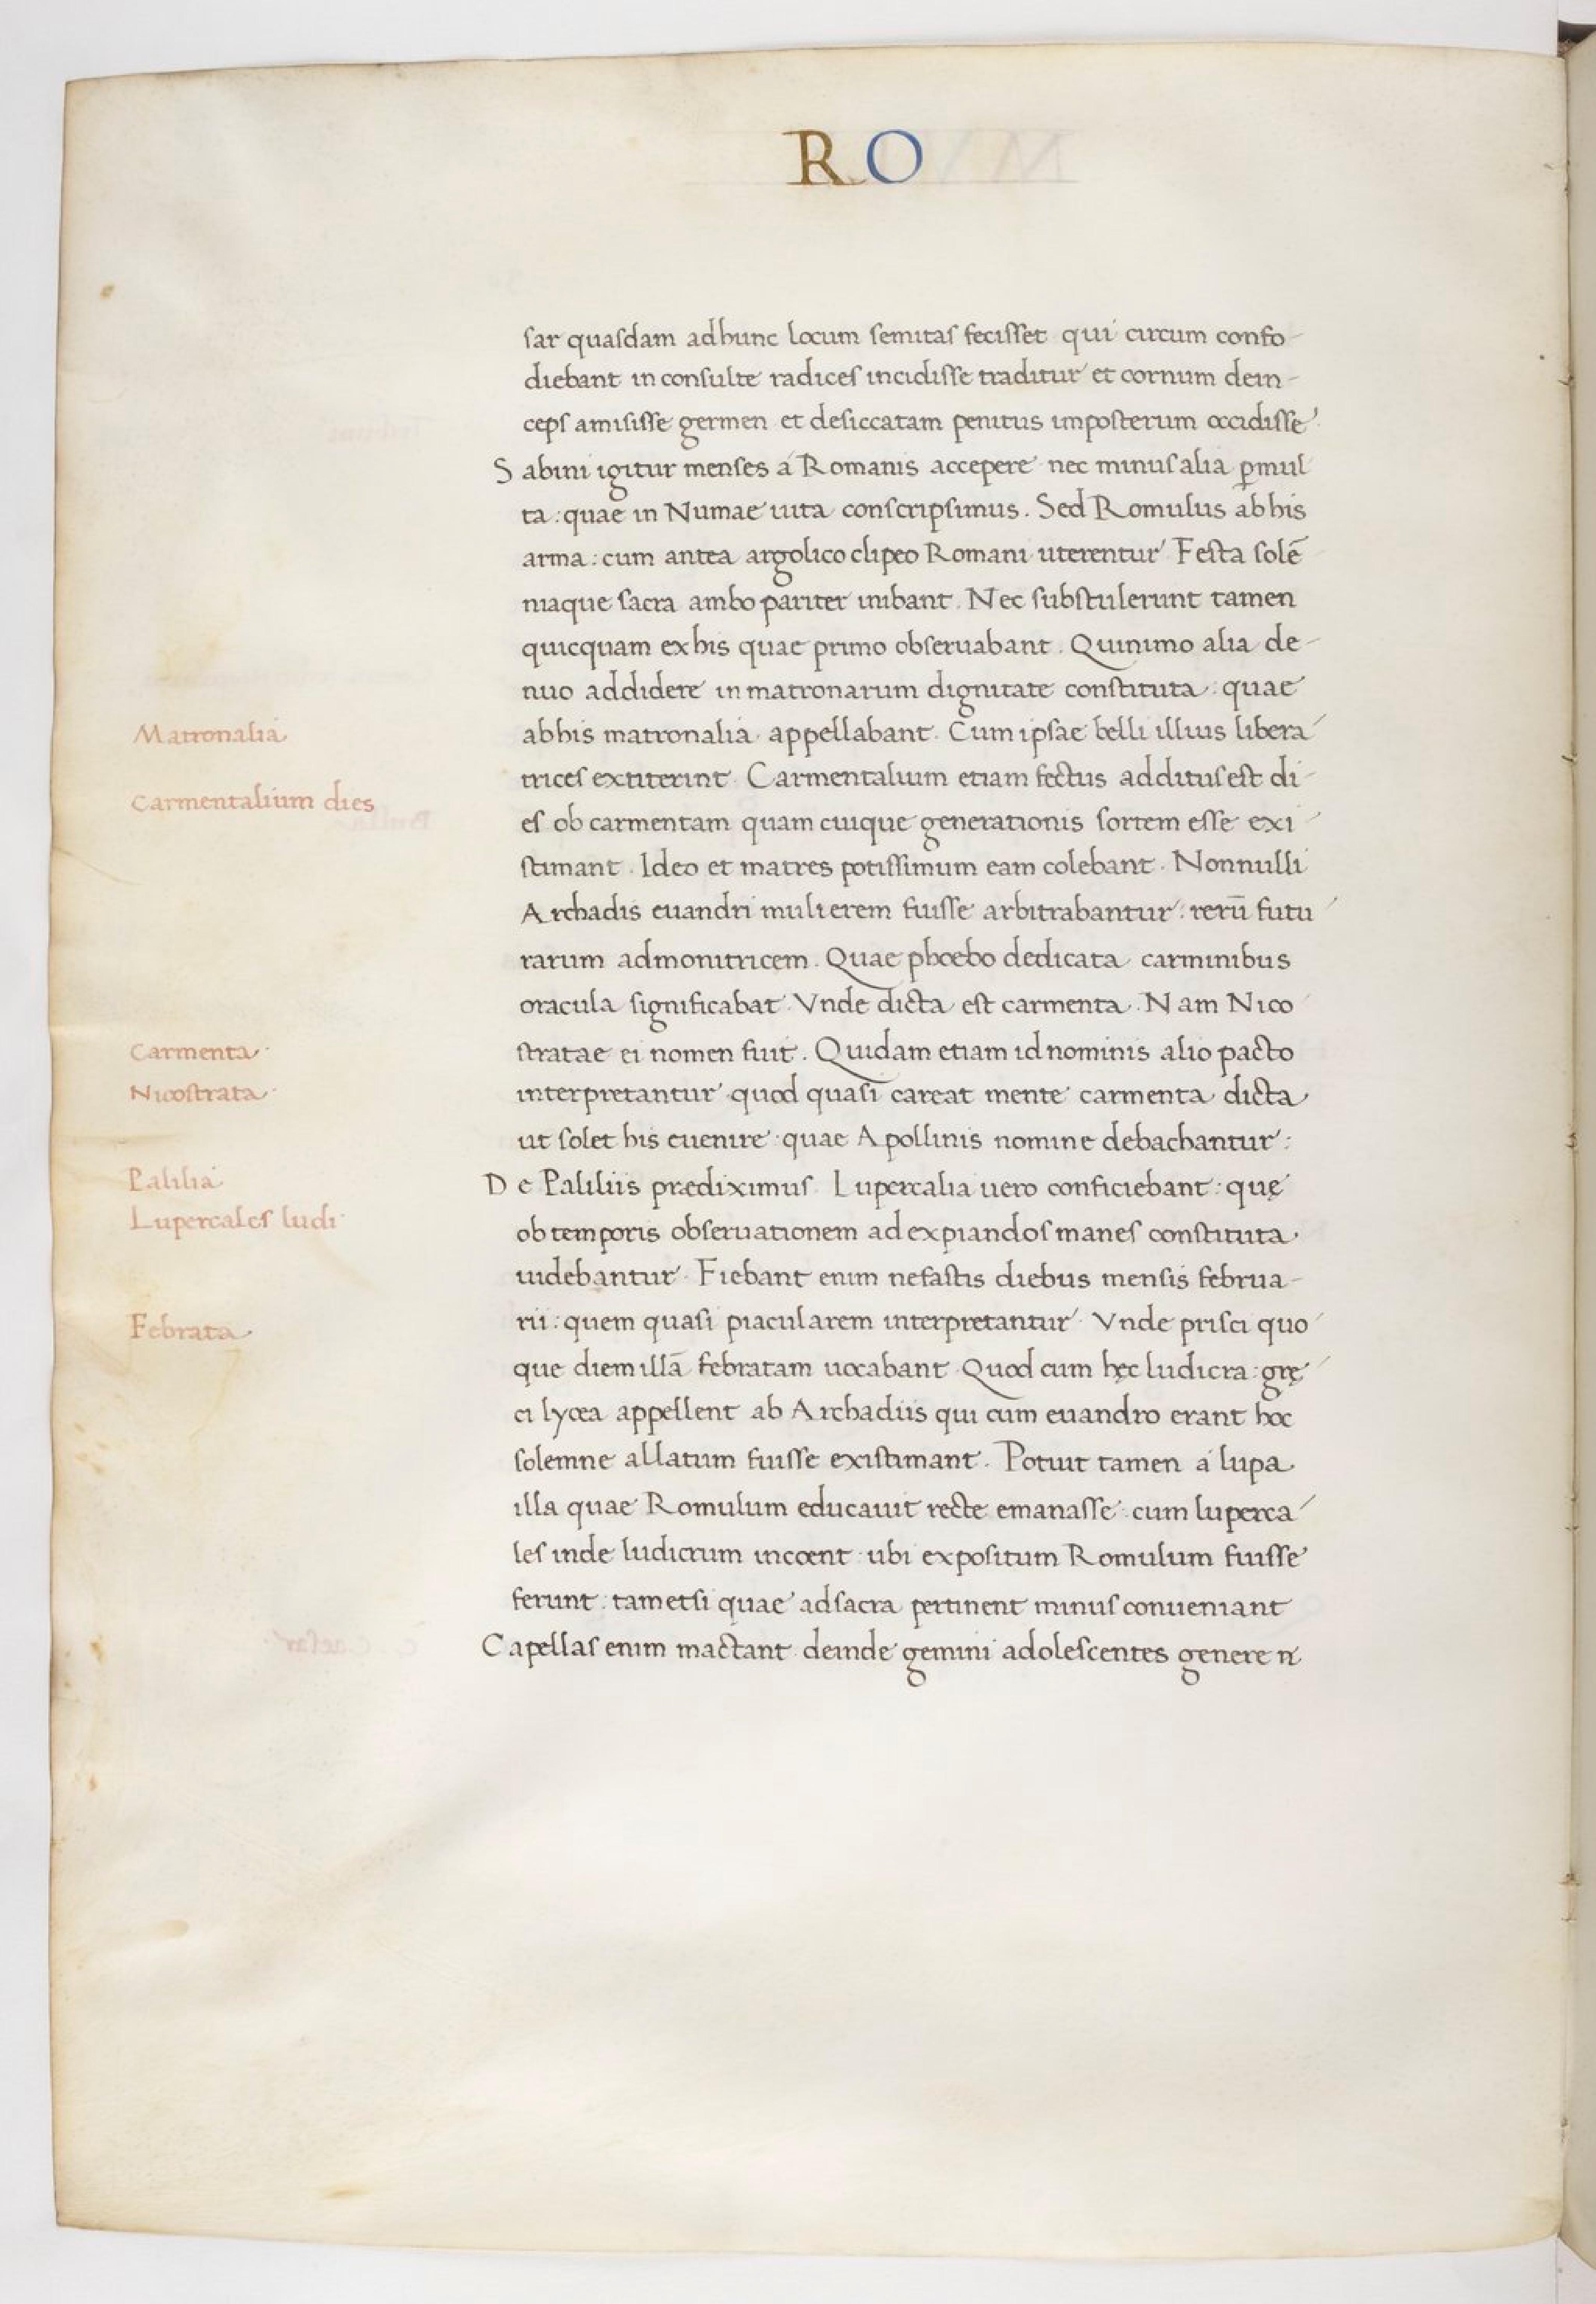 RO
sar quasdam adhunc locum semitas fecisset qui circum confo-
diebant in consulte radices incidisse traditur et cornum dein-
ceps amisisse germen et desiccatam penitus imposterum occidisse.
Sabini igitur menses á Romanis accepere nec minus alia ꝑmul
ta: quae in Numae uita conscripsimus. Sed Romulus ab his
arma: cum antea argolico clipeo Romani uterentur Festa solē
niaque sacra ambo pariter inibant. Nec substulerunt tamen
quicquam ex his quae primo obseruabant. Quinimo alia de-
nuo addidere in matronarum dignitate constituta: quae
Matronalia
abhis matronalia appellabant. Cum ipsae belli illius libera
trices extiterint. Carmentalium etiam fectus additus est di-
Carmentalium dies
es ob carmentam quam cuique generationis sortem esse exi
stimant. Ideo et matres potissimum eam colebant. Nonnulli
Archadis euandri mulierem fuisse arbitrabantur: rerū futu
rarum admonitricem. Quae phoebo dedicata carminibus
oracula significabat. Vnde dicta est carmenta. Nam Nico
Carmenta
stratae ei nomen fuit. Quidam etiam id nominis alio pacto
Nicostrata
interpretantur quod quasi careat mente carmenta dicta
ut solet his euenire quae Apollinis nomine debachantur:
Palilia
De Paliliis prædiximus. Lupercalia uero conficiebant: quę
Lupercales ludi
ob temporis obseruationem ad expiandos manes constituta
uidebantur. Fiebant enim nefastis diebus mensis februa-
Febrata
rii: quem quasi piacularem interpretantur. Vnde prisci quo
que diem illā febratam uocabant. Quod cum hęc ludicra: grę
ci lycea appellent ab Archadiis qui cum euandro erant hoc
solemne allatum fuisse existimant. Potuit tamen á lupa
illa quae Romulum educauit recte emanasse cum luperca
les inde ludicrum incoent ubi expositum Romulum fuisse
ferunt: tametsi quae ad sacra pertinent minus conueniant
Capellas enim mactant deinde gemini adolescentes genere n